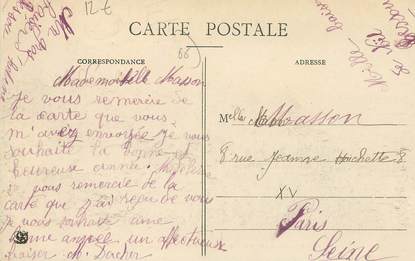 12 €
CARTE POSTALE
66
CORRESPONDANCE
ADRESSE
Mademoiselle Masson
Je vous remercie de
la carte que vous
m'avez envoyée Je vous
souhaite la bonne et
heureuse année
Je vous remercie de la
carte que j'ai reçu de vous
Je vous souhaite une
bonne année un affectueux
baiser
Melle Masson
8 rue Jeanne Hachette 8
XV
Paris
Seine